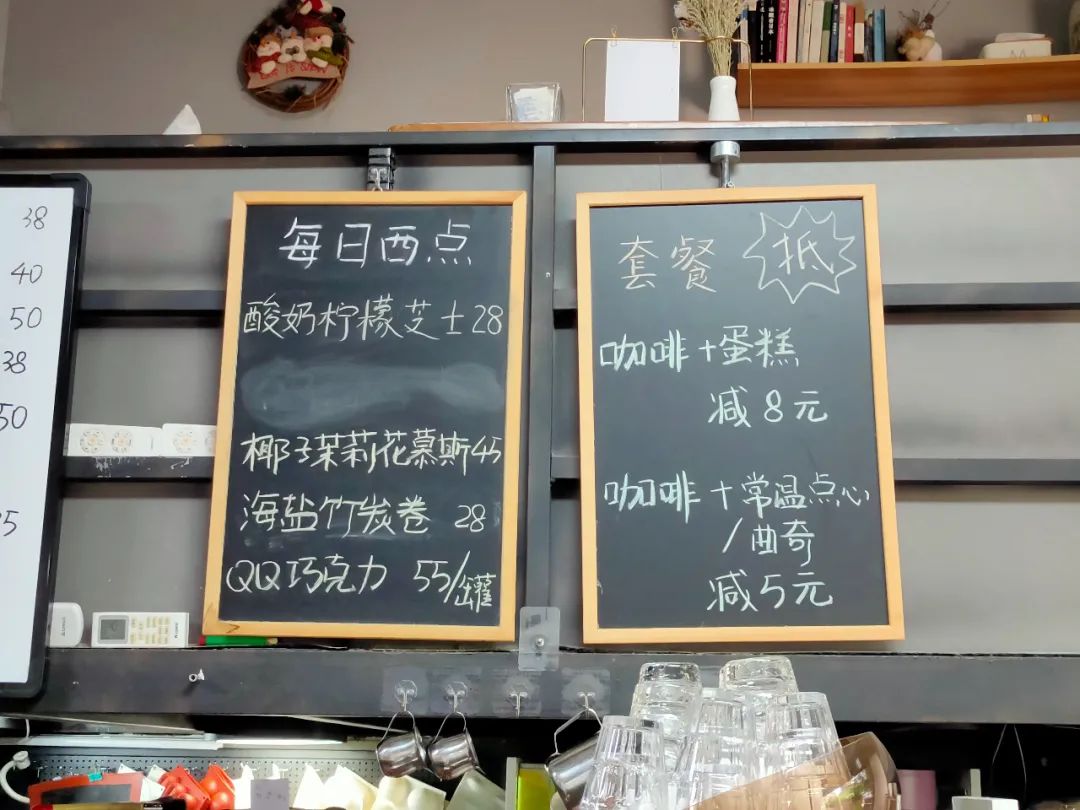 38
40
50
38
50
每日西点
酸奶柠檬芝士28
椰子茉莉花慕斯45
海盐竹炭卷 28
QQ巧克力 55/罐
套餐 抵
咖啡+蛋糕
减8元
咖啡+常温点心
/曲奇
减5元